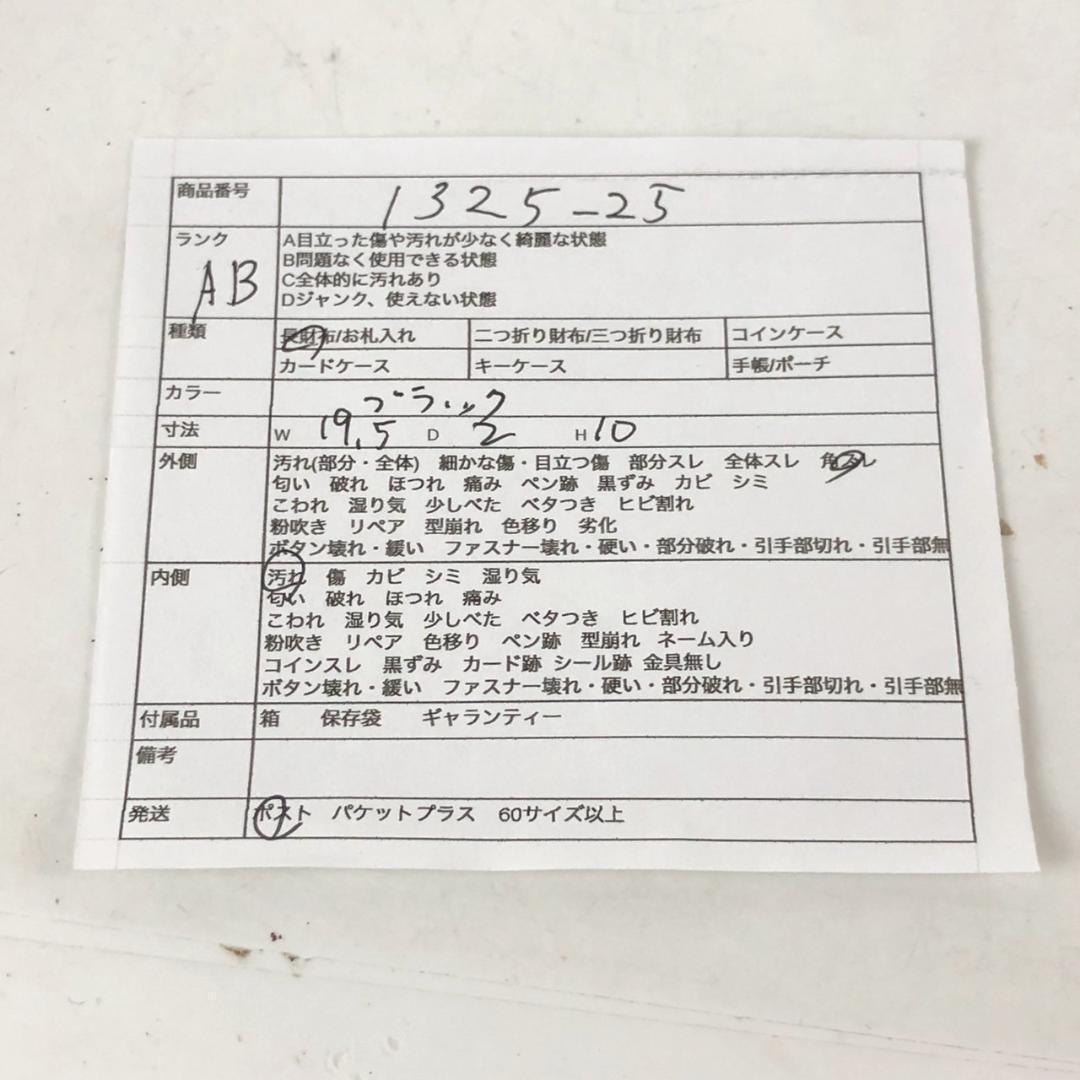 商品番号 1325-25
ランク AB A目立った傷や汚れが少なく綺麗な状態
B問題なく使用できる状態
C全体的に汚れあり
Dジャンク、使えない状態
種類 長財布/お札入れ 二つ折り財布/三つ折り財布 コインケース
カードケース キーケース 手帳/ポーチ
カラー ブラック
寸法 W 19.5 D 2 H 10
外側 汚れ(部分・全体) 細かな傷・目立つ傷 部分スレ 全体スレ 角スレ
匂い 破れ ほつれ 痛み ペン跡 黒ずみ カビ シミ
こわれ 湿り気 少しべた ベタつき ヒビ割れ
粉吹き リペア 型崩れ 色移り 劣化
ボタン壊れ・緩い ファスナー壊れ・硬い・部分破れ・引手部切れ・引手部無
内側 汚れ 傷 カビ シミ 湿り気
匂い 破れ ほつれ 痛み
こわれ 湿り気 少しべた ベタつき ヒビ割れ
粉吹き リペア 色移り ペン跡 型崩れ ネーム入り
コインスレ 黒ずみ カード跡 シール跡 金具無し
ボタン壊れ・緩い ファスナー壊れ・硬い・部分破れ・引手部切れ・引手部無
付属品 箱 保存袋 ギャランティー
備考
発送 ポスト パケットプラス 60サイズ以上